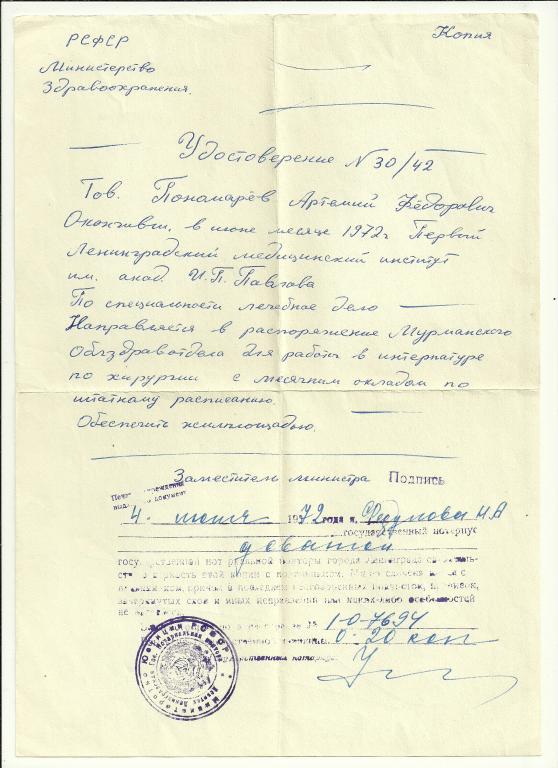 РСФСР
Копия
Министерство
Здравоохранения.
Удостоверение N 30/42
Тов. Пономарёв Артемий Фёдорович
Окончивш. в июне месяце 1972г Первый
Ленинградский медицинский институт
им. акад. И.П. Павлова
По специальности лечебное дело
Направляется в распоряжение Мурманского
Облздравотдела для работы в интернатуре
по хирургии с месячным окладом по
штатному расписанию.
Обеспечить жилплощадью.
Заместитель министра Подпись
4. июля 1972 года я,
государственный нотариус
девятой
государственной нотариальной конторы города Ленинграда
верность этой копии с подлинником.
зачеркнутых слов и иных исправлений или каких-либо особенностей
не
по реестру за № 1-0-7694
0-20 коп